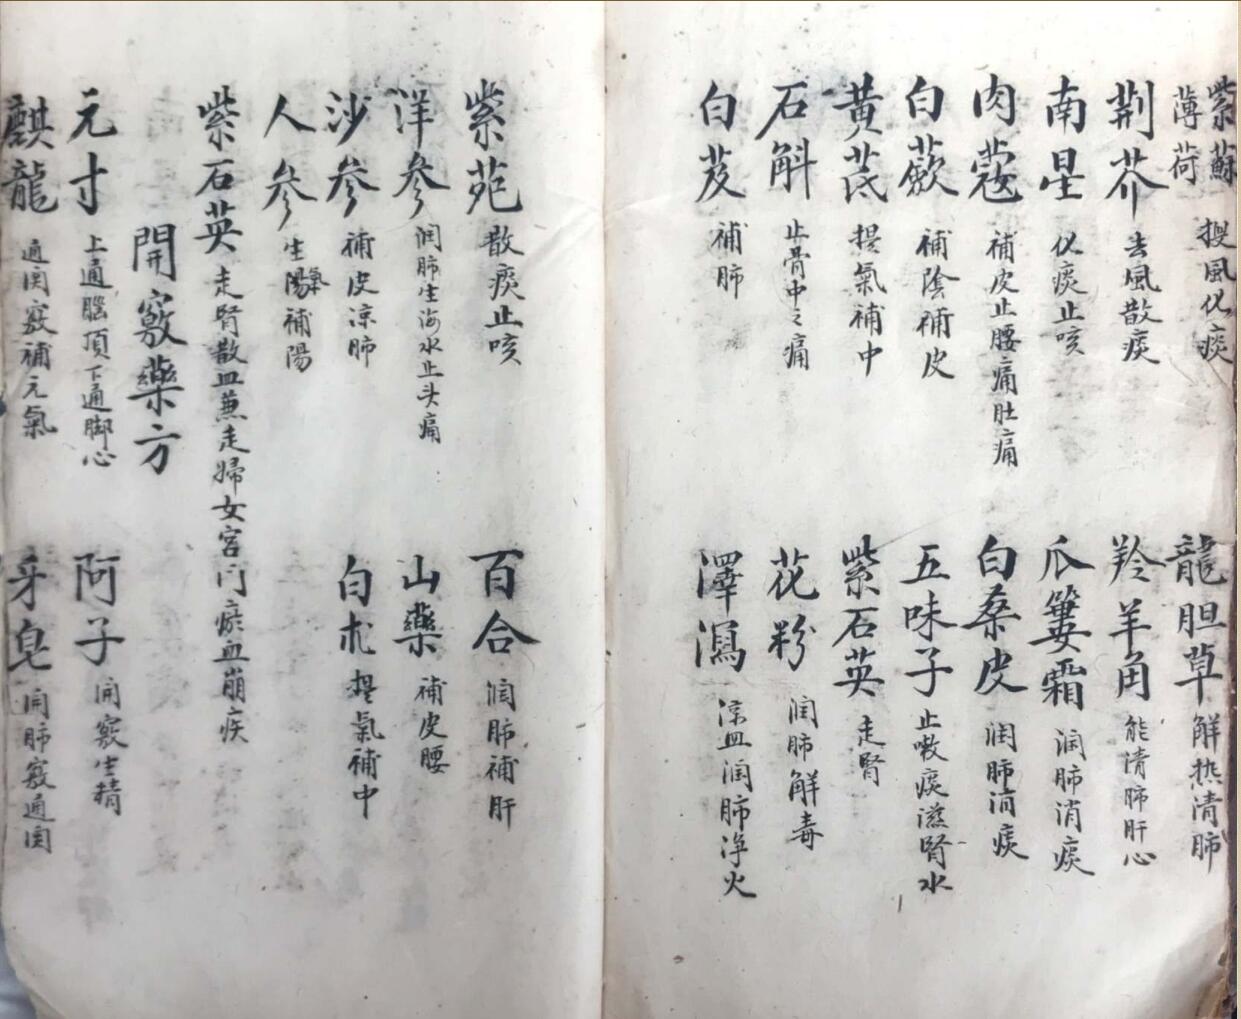 紫蘇薄荷 搜風化痰
龍胆草 解热清肺
荆芥 去風散痰
羚羊角 能清肺肝心
南星 化痰止咳
瓜蔞霜 润肺消痰
肉蔻 補皮止腰痛肚痛
白桑皮 润肺消痰
白蔹 補陰補皮
五味子 止嗽痰滋腎水
黄芪 提氣補中
紫石英 走腎
石斛 止骨中之痛
花粉 润肺解毒
白芨 補肺
澤瀉 凉血润肺净火
紫苑 散痰止咳
百合 润肺補肝
洋參 润肺生海水止头痛
山藥 補皮腰
沙參 補皮凉肺
白朮 提氣補中
人參 生陽氣補陽
紫石英 走腎散血兼走婦女宮门瘀血崩疾
開竅藥方
元寸 上通腦頂下通脚心
阿子 開竅生精
麒龍 通関竅補元氣
牙皂 開肺竅通関